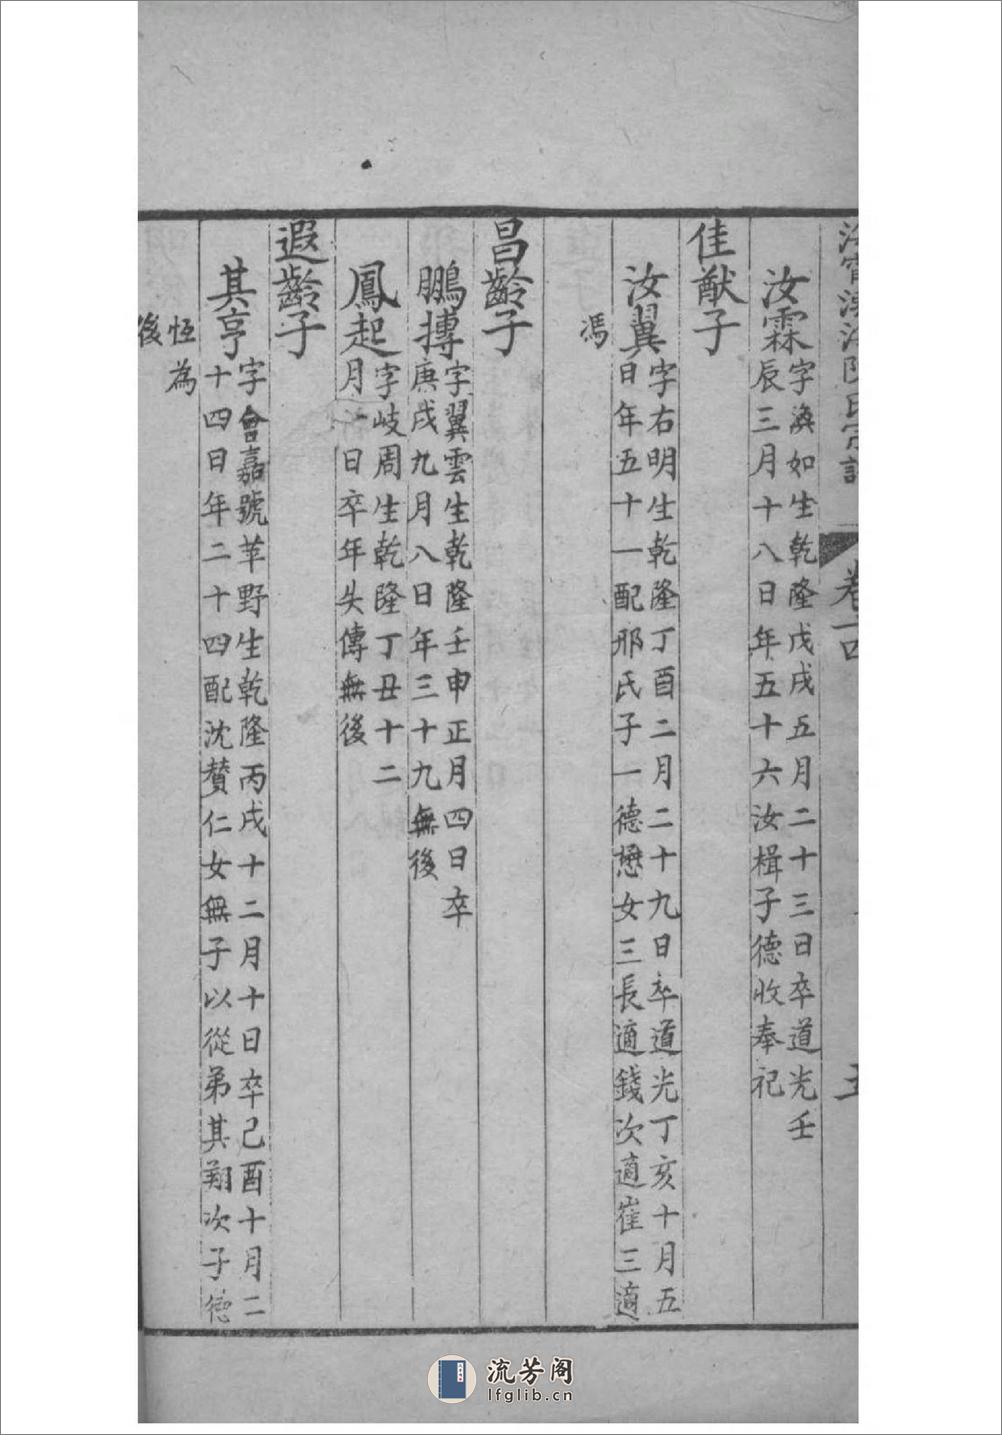 卷十四
五
汝霖
字渙如生乾隆戊戌五月二十三日卒道光壬
辰三月十八日年五十六汝楫子德收奉祀
佳猷子
汝翼
字右明生乾隆丁酉二月二十九日卒道光丁亥十月五
日年五十一配邢氏子一德懋女三長適錢次適崔三適
馮
昌齡子
鵬摶
字翼雲生乾隆壬申正月四日卒
庚戌九月八日年三十九無後
鳳起
字岐周生乾隆丁丑十二
月日卒年失傳無後
遐齡子
其亨
字會嘉號苹野生乾隆丙戌十二月十日卒己酉十月二
十四日年二十四配沈贊仁女無子以從弟其翔次子德
恆為
後
流芳阁
lfglib.cn